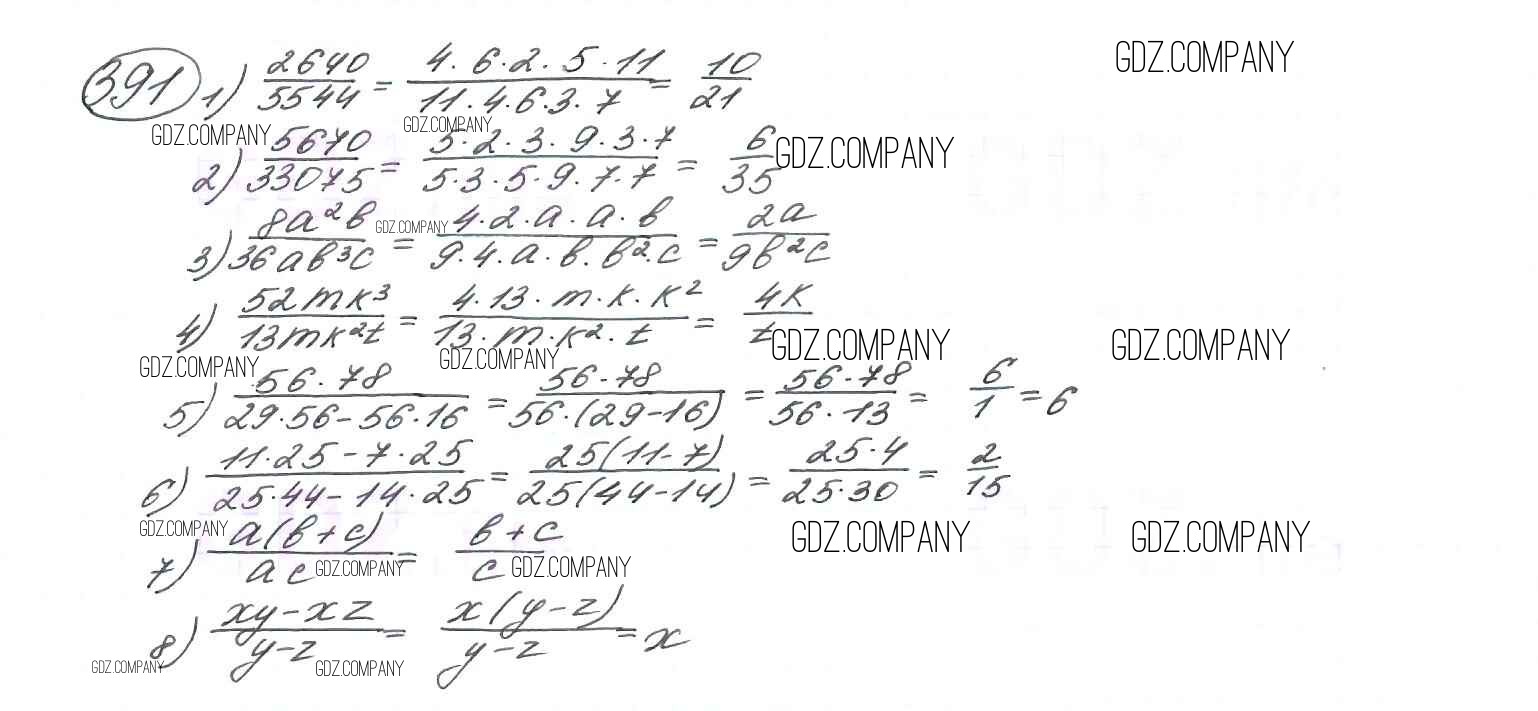 391 1) 2640/5544 = 4·6·2·5·11/11·4·6·3·7 = 10/21 GDZ.COMPANY
GDZ.COMPANY GDZ.COMPANY
2) 5670/33075 = 5·2·3·9·3·7/5·3·5·9·7·7 = 6/35 GDZ.COMPANY
3) 8a²b/36ab³c GDZ.COMPANY = 4·2·a·a·b/9·4·a·b·b²·c = 2a/9b²c
4) 52mk³/13mk²t = 4·13·m·k·k²/13·m·k²·t = 4k/t GDZ.COMPANY GDZ.COMPANY
GDZ.COMPANY GDZ.COMPANY
5) 56·78/29·56-56·16 = 56·78/56·(29-16) = 56·78/56·13 = 6/1 = 6
6) 11·25-7·25/25·44-14·25 = 25(11-7)/25(44-14) = 25·4/25·30 = 2/15
GDZ.COMPANY GDZ.COMPANY GDZ.COMPANY
7) a(b+c)/ac = b+c/c GDZ.COMPANY GDZ.COMPANY
8) xy-xz/y-z = x(y-z)/y-z = x
GDZ.COMPANY GDZ.COMPANY